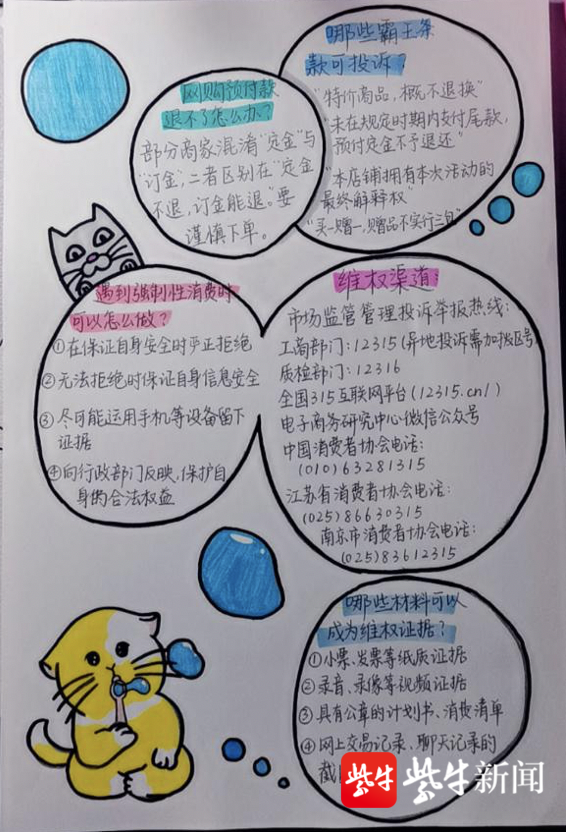 哪些霸王条
款可投诉?
"特价商品,概不退换"
"未在规定时期内支付尾款,
预付定金不予退还"
"本店铺拥有本次活动的
最终解释权"
"买一赠一,赠品不实行三包"
网购预付款
退不了怎么办?
部分商家混淆"定金"与
"订金",二者区别在"定金
不退,订金能退。"要
谨慎下单。
遇到强制性消费时
可以怎么做?
①在保证自身安全时严正拒绝
②无法拒绝时保证自身信息安全
③尽可能运用手机等设备留下
证据
④向行政部门反映,保护自
身的合法权益
维权渠道:
市场监管管理投诉举报热线:
工商部门:12315(异地投诉需加拨区号
质检部门:12316
全国315互联网平台(12315.cn/)
电子商务研究中心微信公众号
中国消费者协会电话:
(010)63281315
江苏省消费者协会电话:
(025)86630315
南京市消费者协会电话:
(025)83612315
哪些材料可以
成为维权证据?
①小票、发票等纸质证据
②录音、录像等视频证据
③具有公章的计划书、消费清单
④网上交易记录、聊天记录的
截
紫牛 紫牛新闻